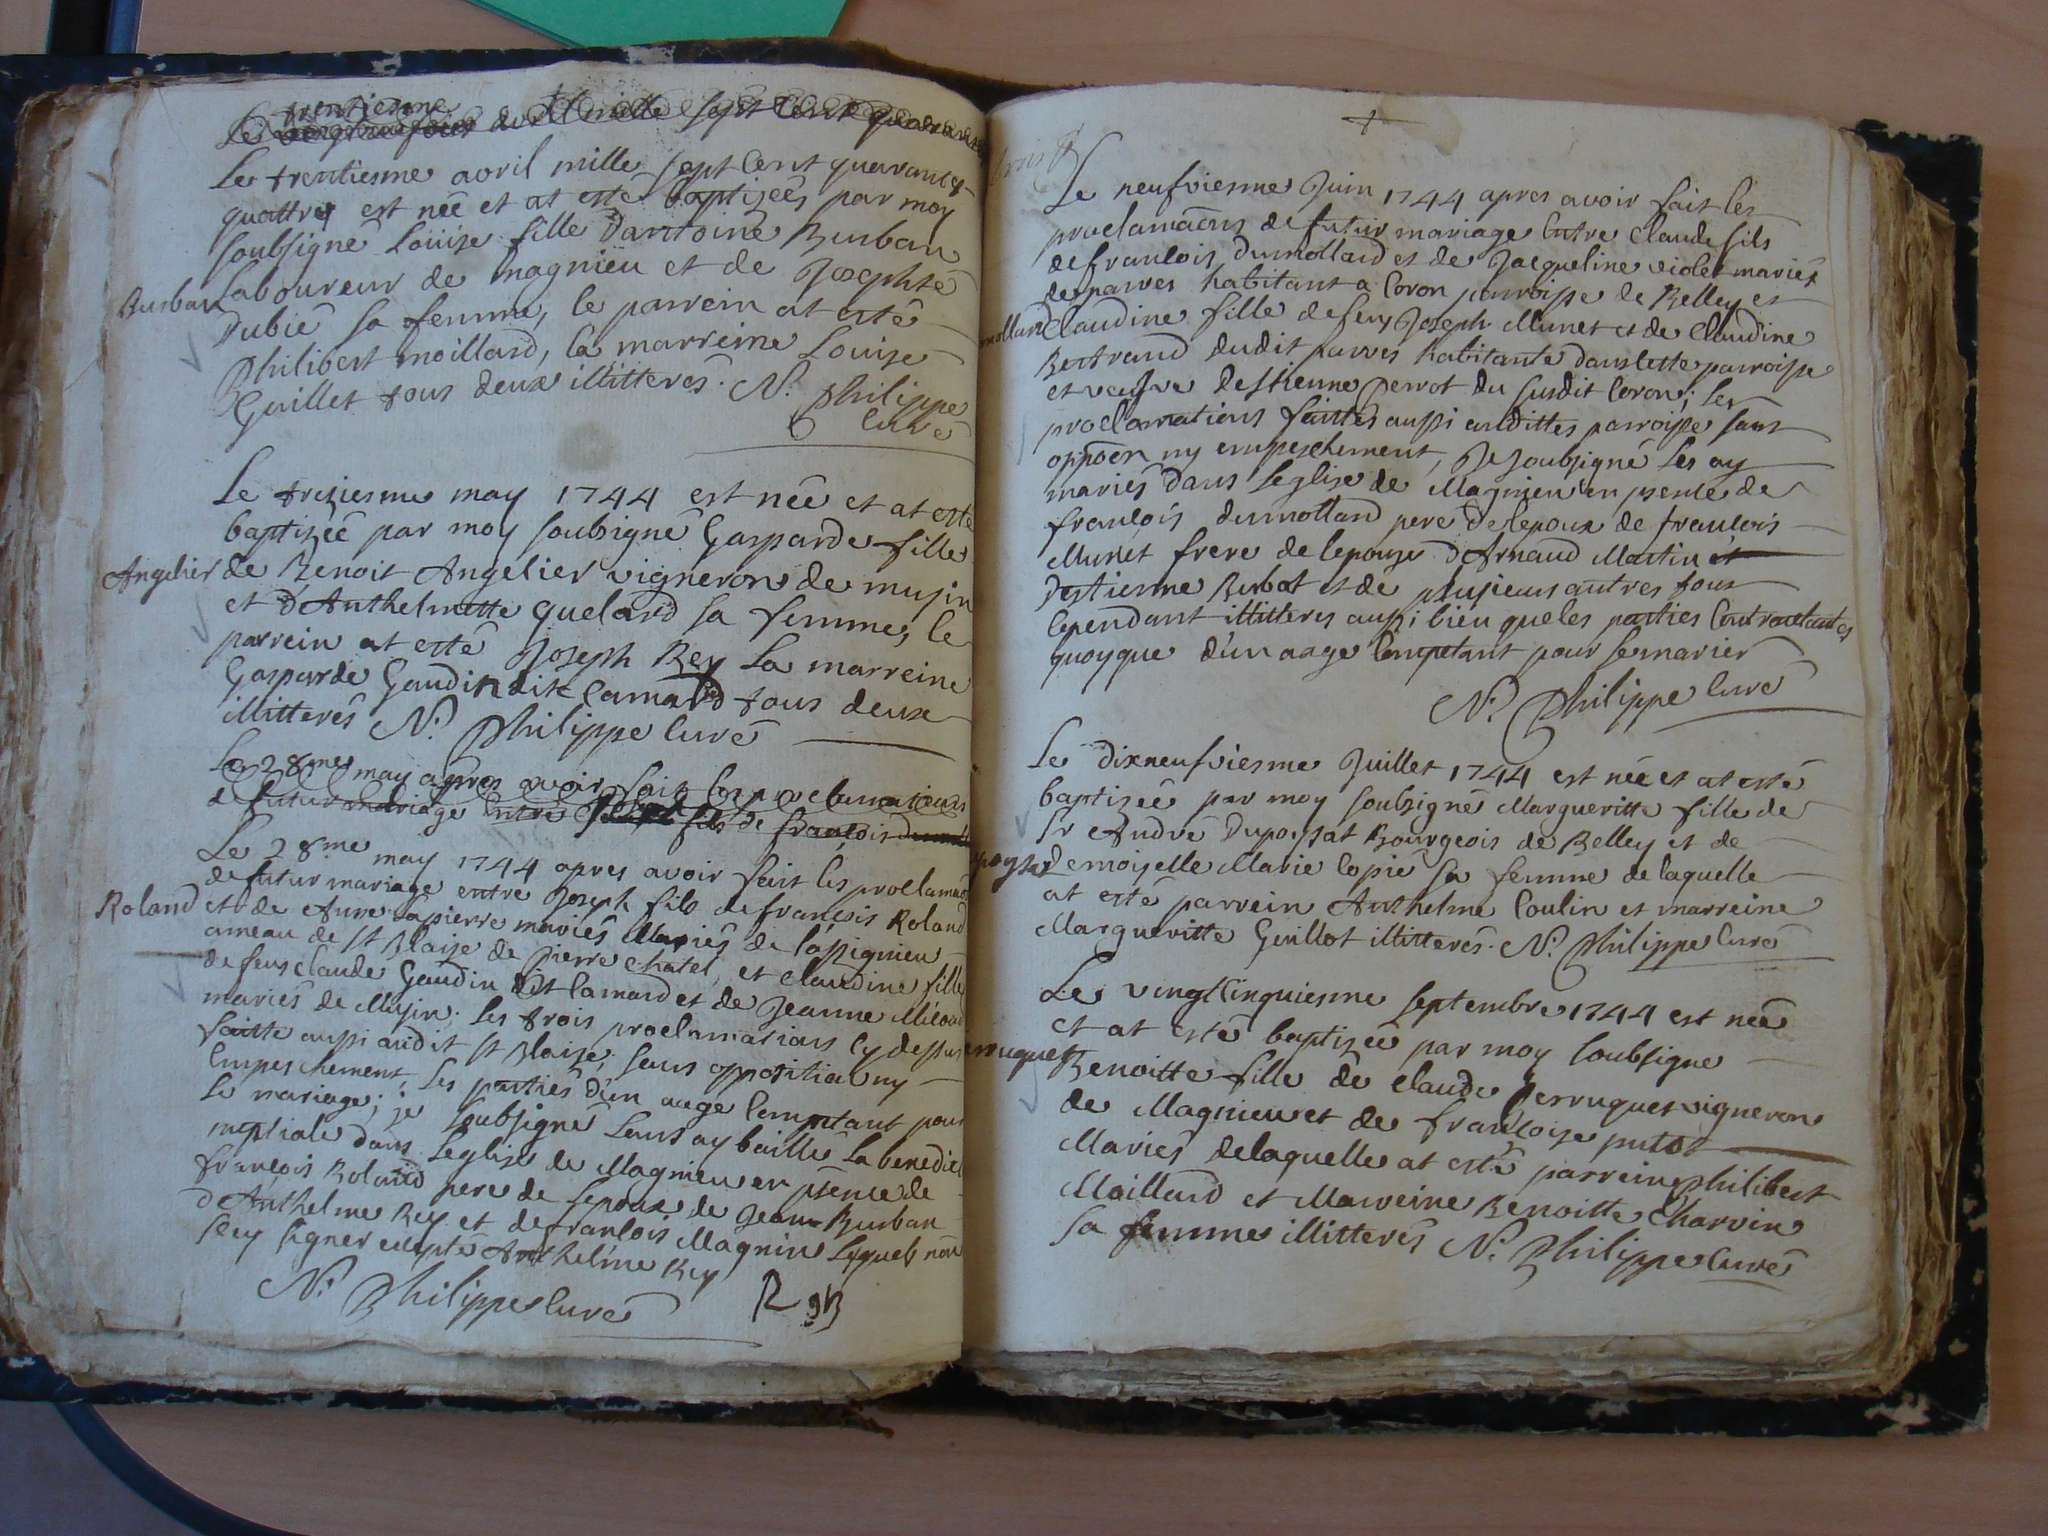 Le trentiesme avril mille sept cent quarante
Le trentiesme avril mille sept cent quarante
quattre est née et at esté baptizéé par moy
soubsigné Loüise fille d'antoine Burban
Burban
laboureur de magnieu et de Josephté
Dubié sa femme, le parrein at esté
Philibert moillard, la marreine Louise
Guillet tous deux illitterés. N. Philippe
Curé
Le treziesme may 1744 est néé et at esté
baptizéé par moy soubsigné Gasparde fille
Angelier
de Benoit Angelier vigneron de musin
et d'Anthelmette quelard sa femme, le
parrein at esté Joseph Rey La marreine
Gasparde Gaudin dit Camard tous deux
illitterés N. Philippe Curé
Le 28me may apres avoir fait les proclamations
de futur mariage entre fils de françois
Le 28me may 1744 apres avoir fait les proclamaõs
de futur mariage entre Joseph fils de françois Roland
Roland
et de Anne lapierre mariés de lápignieu
ameau de St Blaise de Pierre Chatel, et Claudine fille
de feus claude Gaudin dit Camard et de Jeanne
mariés de Musin. Les trois proclamations cy dessus
faitte aussi audit St Blaise, sans opposition ny
empeschement, les partiés d'un aage Competant pour
le mariage, je soubsigné leurs ay baillé la benedic
nuptiale dans Leglise de Magnieu en pñence de
françois Roland pere de lepoux de Jean Burban
d'Anthelme Rey et de françois Magnin Lequels non
sceu signer excepté Anthelme Rey
N. Philippe Curé
Le neufviesme Juin 1744 apres avoir fait les
proclamaõns de futur mariage entre Claude fils
de francois Dumollard et de Jacqueline violet mariés
de parves habitant a Coron parroisse de Belley et
mollard
Claudine fille de feu Joseph Munet et de Claudine
Bertrand dudit parves habitante dans cette parroisse
et veufve destienne Perrot du susdit Coron; les
proclamations faittes aussi audittes parroisse sans
oppõen ny empeschement, Je soubsigné les ay
mariés dans Leglise de Magnieu en pñence de
francois dumollard pere de lepoux de francois
Munet frere de lepouse d'Arnaud Martin et
destienne Burbat et de plusieurs autres tous
Cependant illitteres aussi bien que les parties Contractantes
quoyque d'un aage Competant pour se marier
N. Philippe Curé
Le dixneufviesme Juillet 1744 est néé et at esté
baptizéé par moy soubsigné Margueritte fille de
Sr André Dupoysat Bourgeois de Belley et de
poysat
Demoiselle Marie Copié sa femme de laquelle
at esté parrein Anthelme Coulin et marreine
Margueritte Guillot illitterés. N. Philippe Curé
Le vingtCinquiesme Septembre 1744 est néé
et at esté baptizéé par moy soubsigne
erruquet
Benoitte fille de claude Perruquet vigneron
de Magnieu et de francoise putot
Mariés delaquelle at esté parrein Philibert
Moillard et Marreine Benoitte Charvin
sa femme illitterés N. Philippe Curé